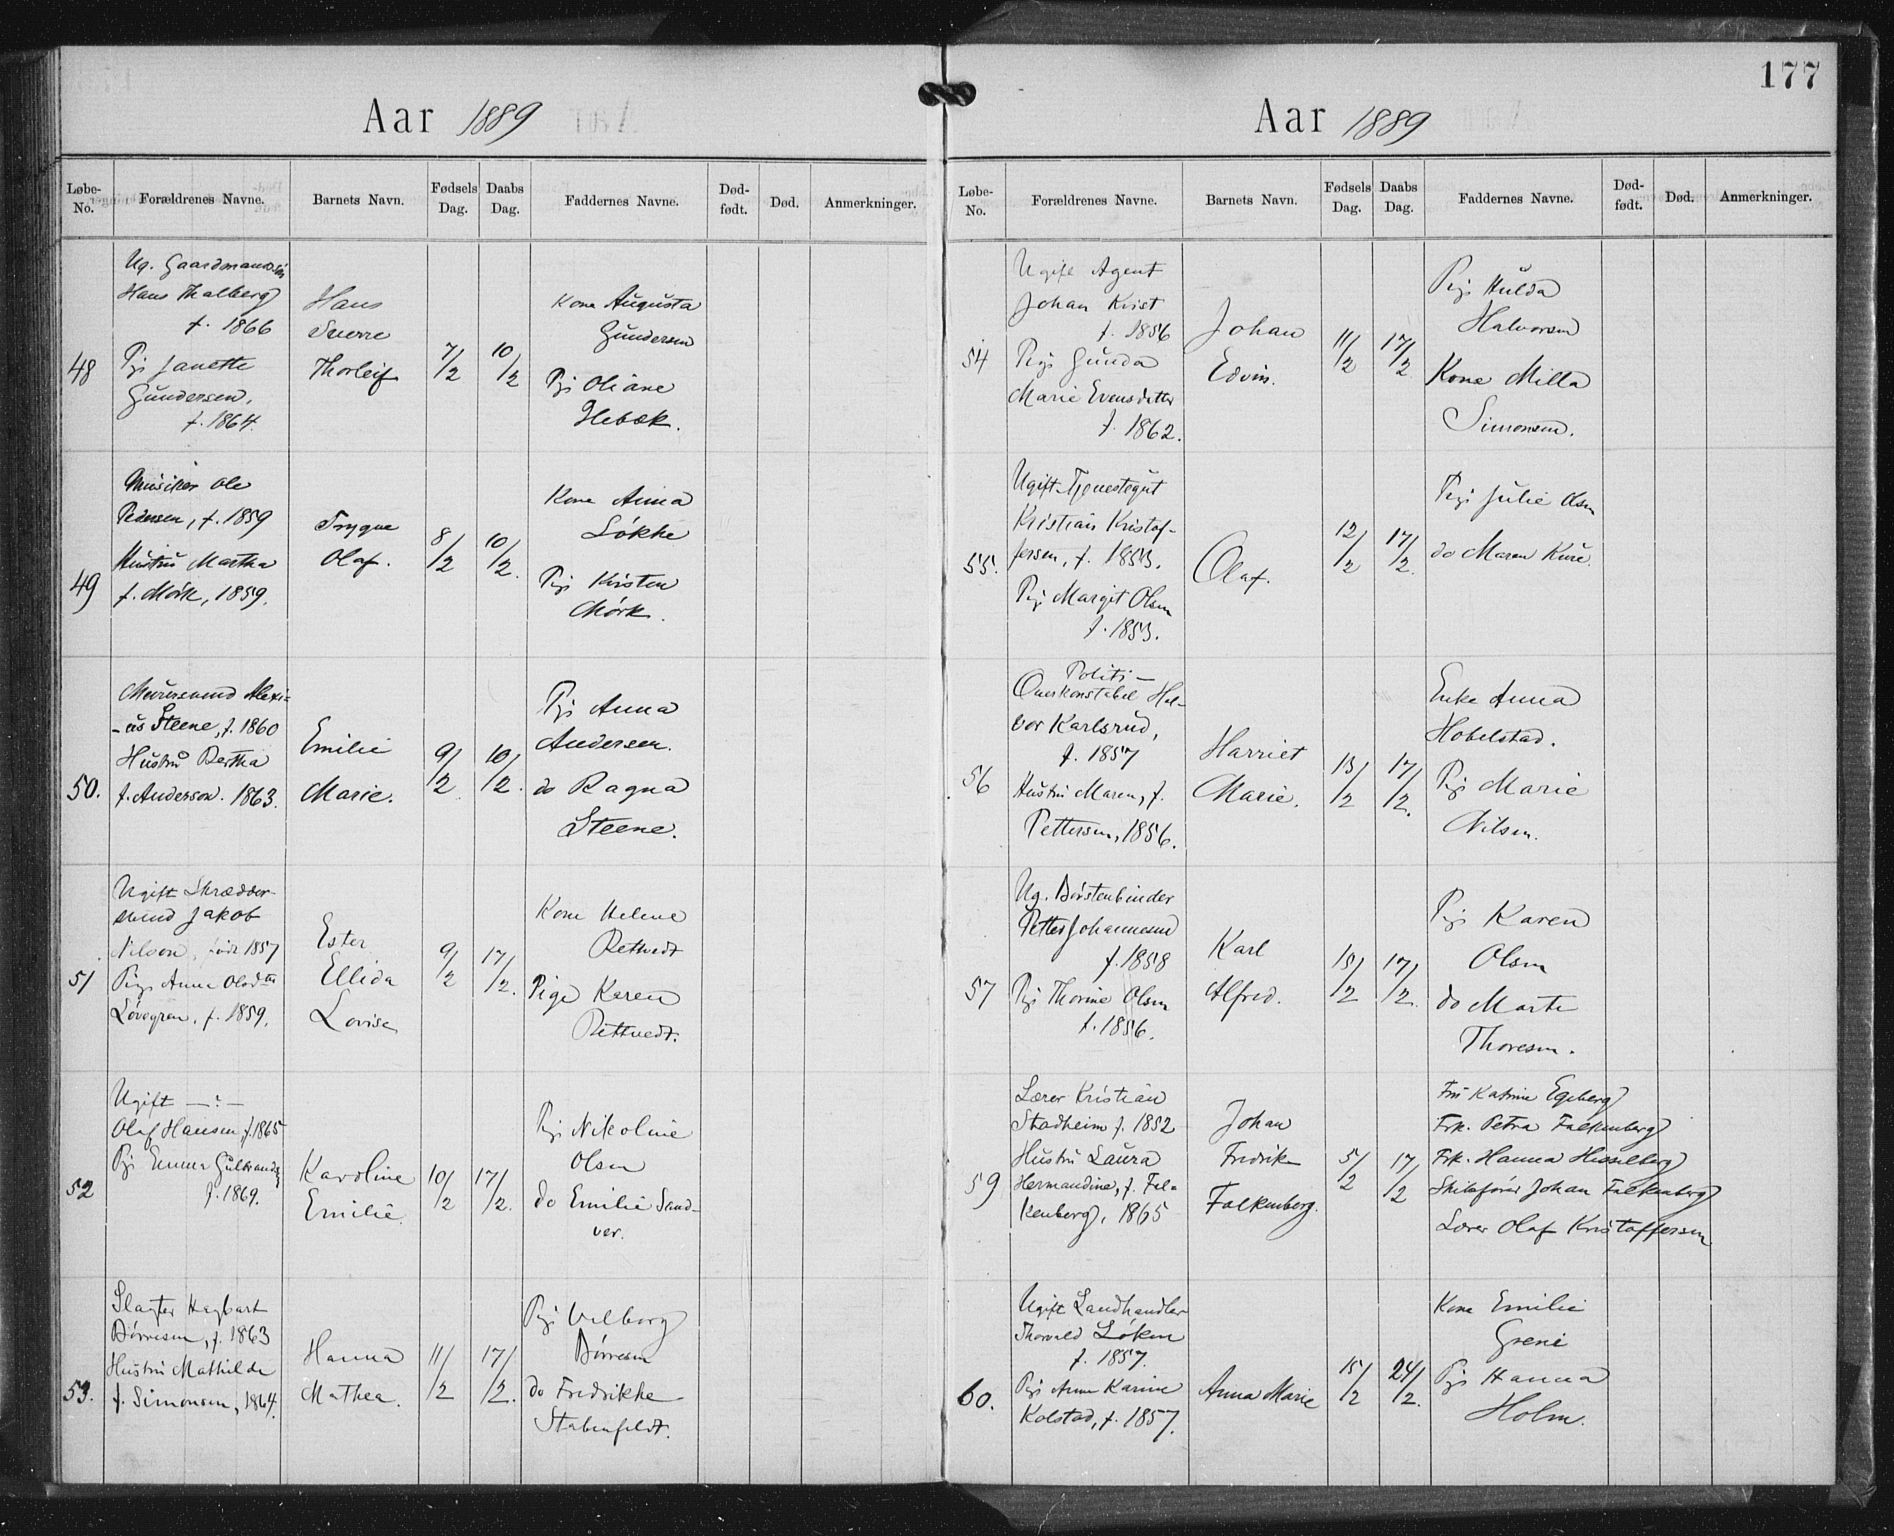 177
Aar 1889
Løbe-No. Forældrenes Navne. Barnets Navn. Fødsels Dag. Daabs Dag. Faddernes Navne. Død-født. Død. Anmerkninger.
48
Ug. Gaardmandssøn
Hans Thalberg
f. 1866
Pige Janette
Gundersen,
f. 1864.
Hans
Sverre
Thorleif
7/2
10/2
Kone Augusta
Gundersen
Pige Oliane
Hebæk.
49
Musiker Ole
Pedersen, f. 1859
Hustru Martha
f. Mörk, 1859.
Trygve
Olaf.
8/2
10/2.
Kone Anna
Løkke
Pige Kristen
Mörk.
50.
Meiersvend Alexi-
-us Steene, f. 1860
Hustru Bertha
f. Anderson. 1863.
Emilie
Marie.
9/2
10/2.
Pige Anna
Andersen.
do Ragna
Steene.
51
Ugift Skrædder-
svend Jakob
Nilson, født 1857
Pige Anna Olsdtr
Lövegren, f. 1859.
Ester
Ellida
Lovise
9/2
17/2.
Kone Helene
Rettvedt
Pige Karen
Rettvedt.
52
Ugift —:—
Olaf Hansen, f. 1865
Pige Emma Gulbrands
f. 1869.
Karoline
Emilie.
10/2
17/2.
Pige Nikoline
Olsen
do Emilie Sand-
ver.
53.
Slagter Hagbart
Börresen, f. 1863
Hustru Mathilde
f. Simonsen, 1864.
Hanna
Mathea.
11/2
17/2.
Pige Valborg
Börresen
do Fredrikke
Stabenfeldt.
Aar 1889
Løbe-No. Forældrenes Navne. Barnets Navn. Fødsels Dag. Daabs Dag. Faddernes Navne. Død-født. Død. Anmerkninger.
54
Ugift Agent
Johan Krist
f. 1856
Pige Gunda
Marie Evensdatter
f. 1862.
Johan
Edvin.
11/2
17/2
Pige Hulda
Halvorsen
Kone Milla
Simonsen.
55.
Ugift Tjenestegut
Kristian Kristof-
fersen, f. 1853.
Pige Margit Olsen
f. 1853.
Olaf.
12/2
17/2.
Pige Julie Olsen
do Maren Kure.
56
Politi-
Overkonstabel Hal-
vor Karlsrud,
f. 1857
Hustru Maren, f.
Pettersen, 1856.
Harriet
Marie.
13/2
17/2.
Enke Anna
Hobelstad.
Pige Marie
Nilsen.
57
Ug. Börstenbinder
Petter Johannesen
f. 1858
Pige Thorine Olsen
f. 1856.
Karl
Alfred.
15/2
17/2.
Pige Karen
Olsen
do Marte
Thoresen.
59
Lærer Kristian
Stadheim f. 1852
Hustru Laura
Hermandine, f. Fal-
kenberg, 1865
Johan
Fredrik
Falkenberg.
5/2
17/2
Fru Katrine Egeberg
Frk. Petra Falkenberg
Frk. Hanna Hesselberg
Skibsfører Johan Falkenberg
Lærer Olaf Kristoffersen
60.
Ugift Landhandler
Thorvald Löken
f. 1857.
Pige Anne Karine
Kolstad, f. 1857.
Anna Marie
15/2
24/2.
Kone Emilie
Grene
Pige Hanna
Holm.